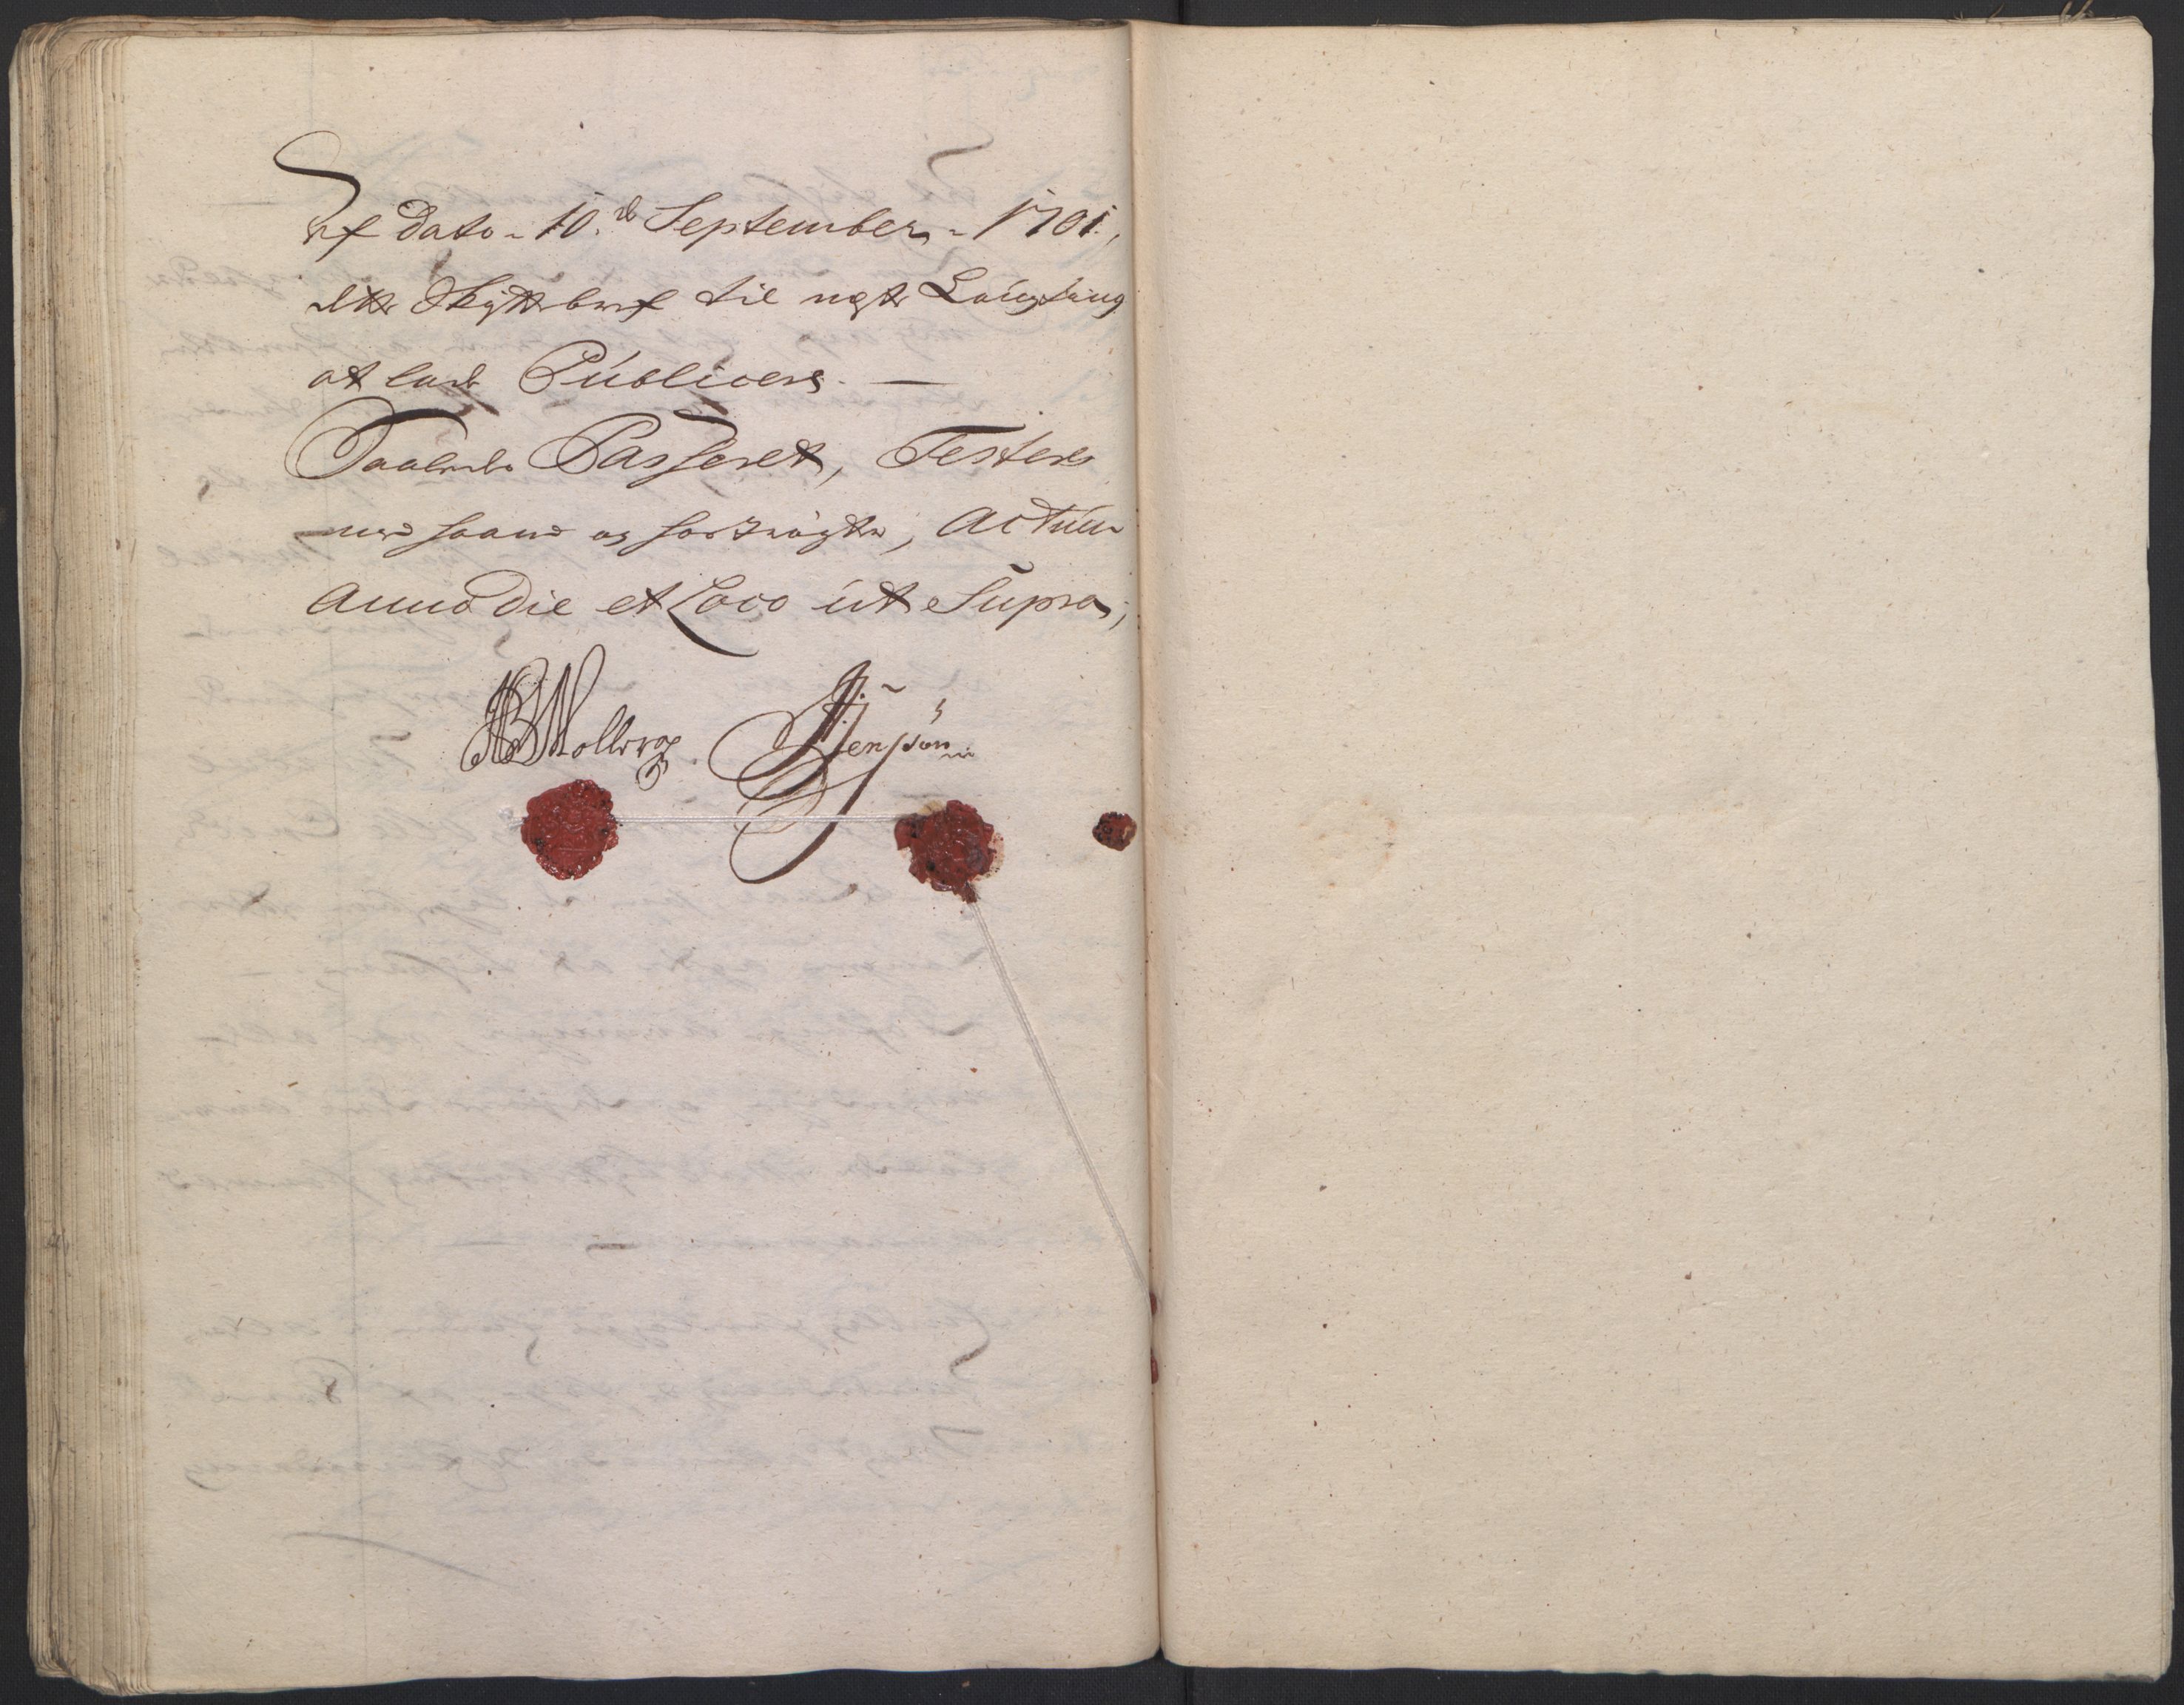 af dato 10.de September 1701,
dette Skiøttebref til negste Laugting
at lade Publicere. —
Saaledes Passeret, Testere
med haand og forzeigle, Actum
Anno Die et Loco ut Supra,
Mollerop. Jensøn